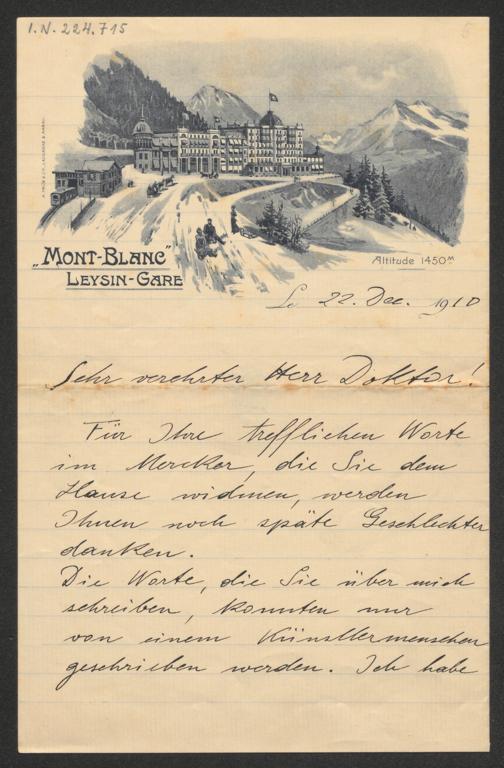 I.N. 224.715
„MONT-BLANC“
LEYSIN-GARE
Altitude 1450 M
Le 22. Dec. 1910
Sehr verehrter Herr Doktor!
Für Ihre trefflichen Worte
im Mercker, die Sie dem
Hause widmen, werden
Ihnen noch späte Geschlechter
danken.
Die Worte, die Sie über mich
schreiben, konnten nur
von einem Künstlermenschen
geschrieben werden. Ich habe